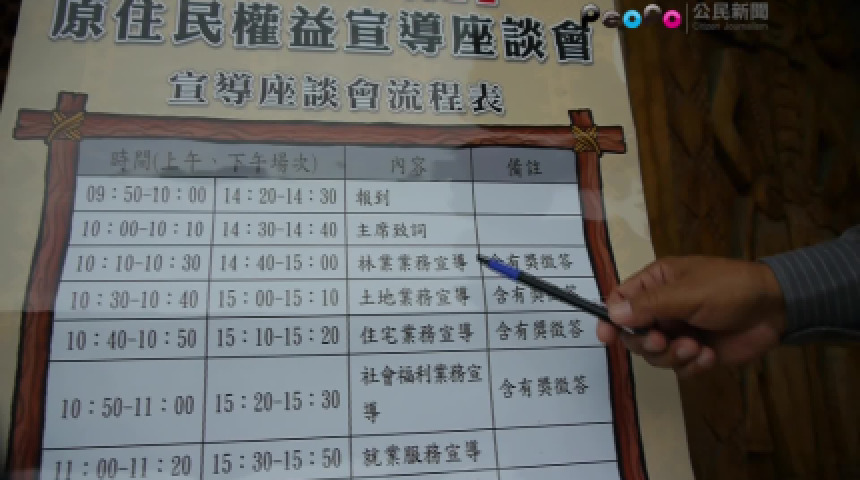 原住民權益宣導座談會
peopo 公民新聞
Citizen Journalism
宣導座談會流程表
時間(上午、下午場次) 內容 備註
09:50-10:00 14:20-14:30 報到
10:00-10:10 14:30-14:40 主席致詞
10:10-10:30 14:40-15:00 林業業務宣導 含有獎徵答
10:30-10:40 15:00-15:10 土地業務宣導 含有獎徵答
10:40-10:50 15:10-15:20 住宅業務宣導 含有獎徵答
10:50-11:00 15:20-15:30 社會福利業務宣導 含有獎徵答
11:00-11:20 15:30-15:50 就業服務宣導